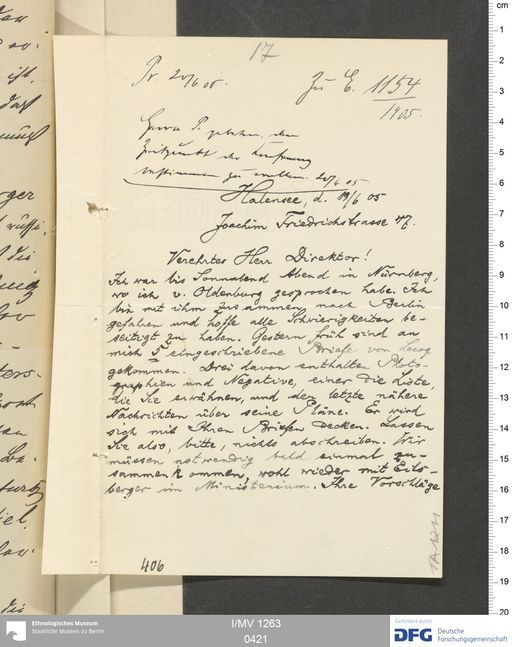 17
Pr. 20/6 05.
Zu E. 1154
1905.
Herrn P. gebeten, den
Zeitpunkt der
bestimmen zu wollen. 20/6 05
Halensee, d. 19/6 05
Joachim Friedrichstrasse
Verehrter Herr Direktor!
Ich war bis Sonnabend Abend in Nürnberg,
wo ich v. Oldenburg gesprochen habe. Ich
bin mit ihm zusammen nach Berlin
gefahren und hoffe alle Schwierigkeiten be-
seitigt zu haben. Gestern früh sind an
mich 5 eingeschriebene Briefe von Lecoq
gekommen. Drei davon enthalten Photo-
graphien und Negative, einer die Liste,
die Sie erwähnen, und der letzte nähere
Nachrichten über seine Pläne. Er wird
sich mit Ihren Briefen decken. Lassen
Sie also, bitte, nichts abschreiben. Wir
müssen notwendig bald einmal zu-
sammenkommen, wohl wieder mit Eils-
berger im Ministerium. Ihre Vorschläge
406
Ethnologisches Museum
Staatliche Museen zu Berlin
I/MV 1263
0421
Gefördert durch
DFG Deutsche
Forschungsgemeinschaft
cm
1
2
3
4
5
6
7
8
9
10
11
12
13
14
15
16
17
18
19
20